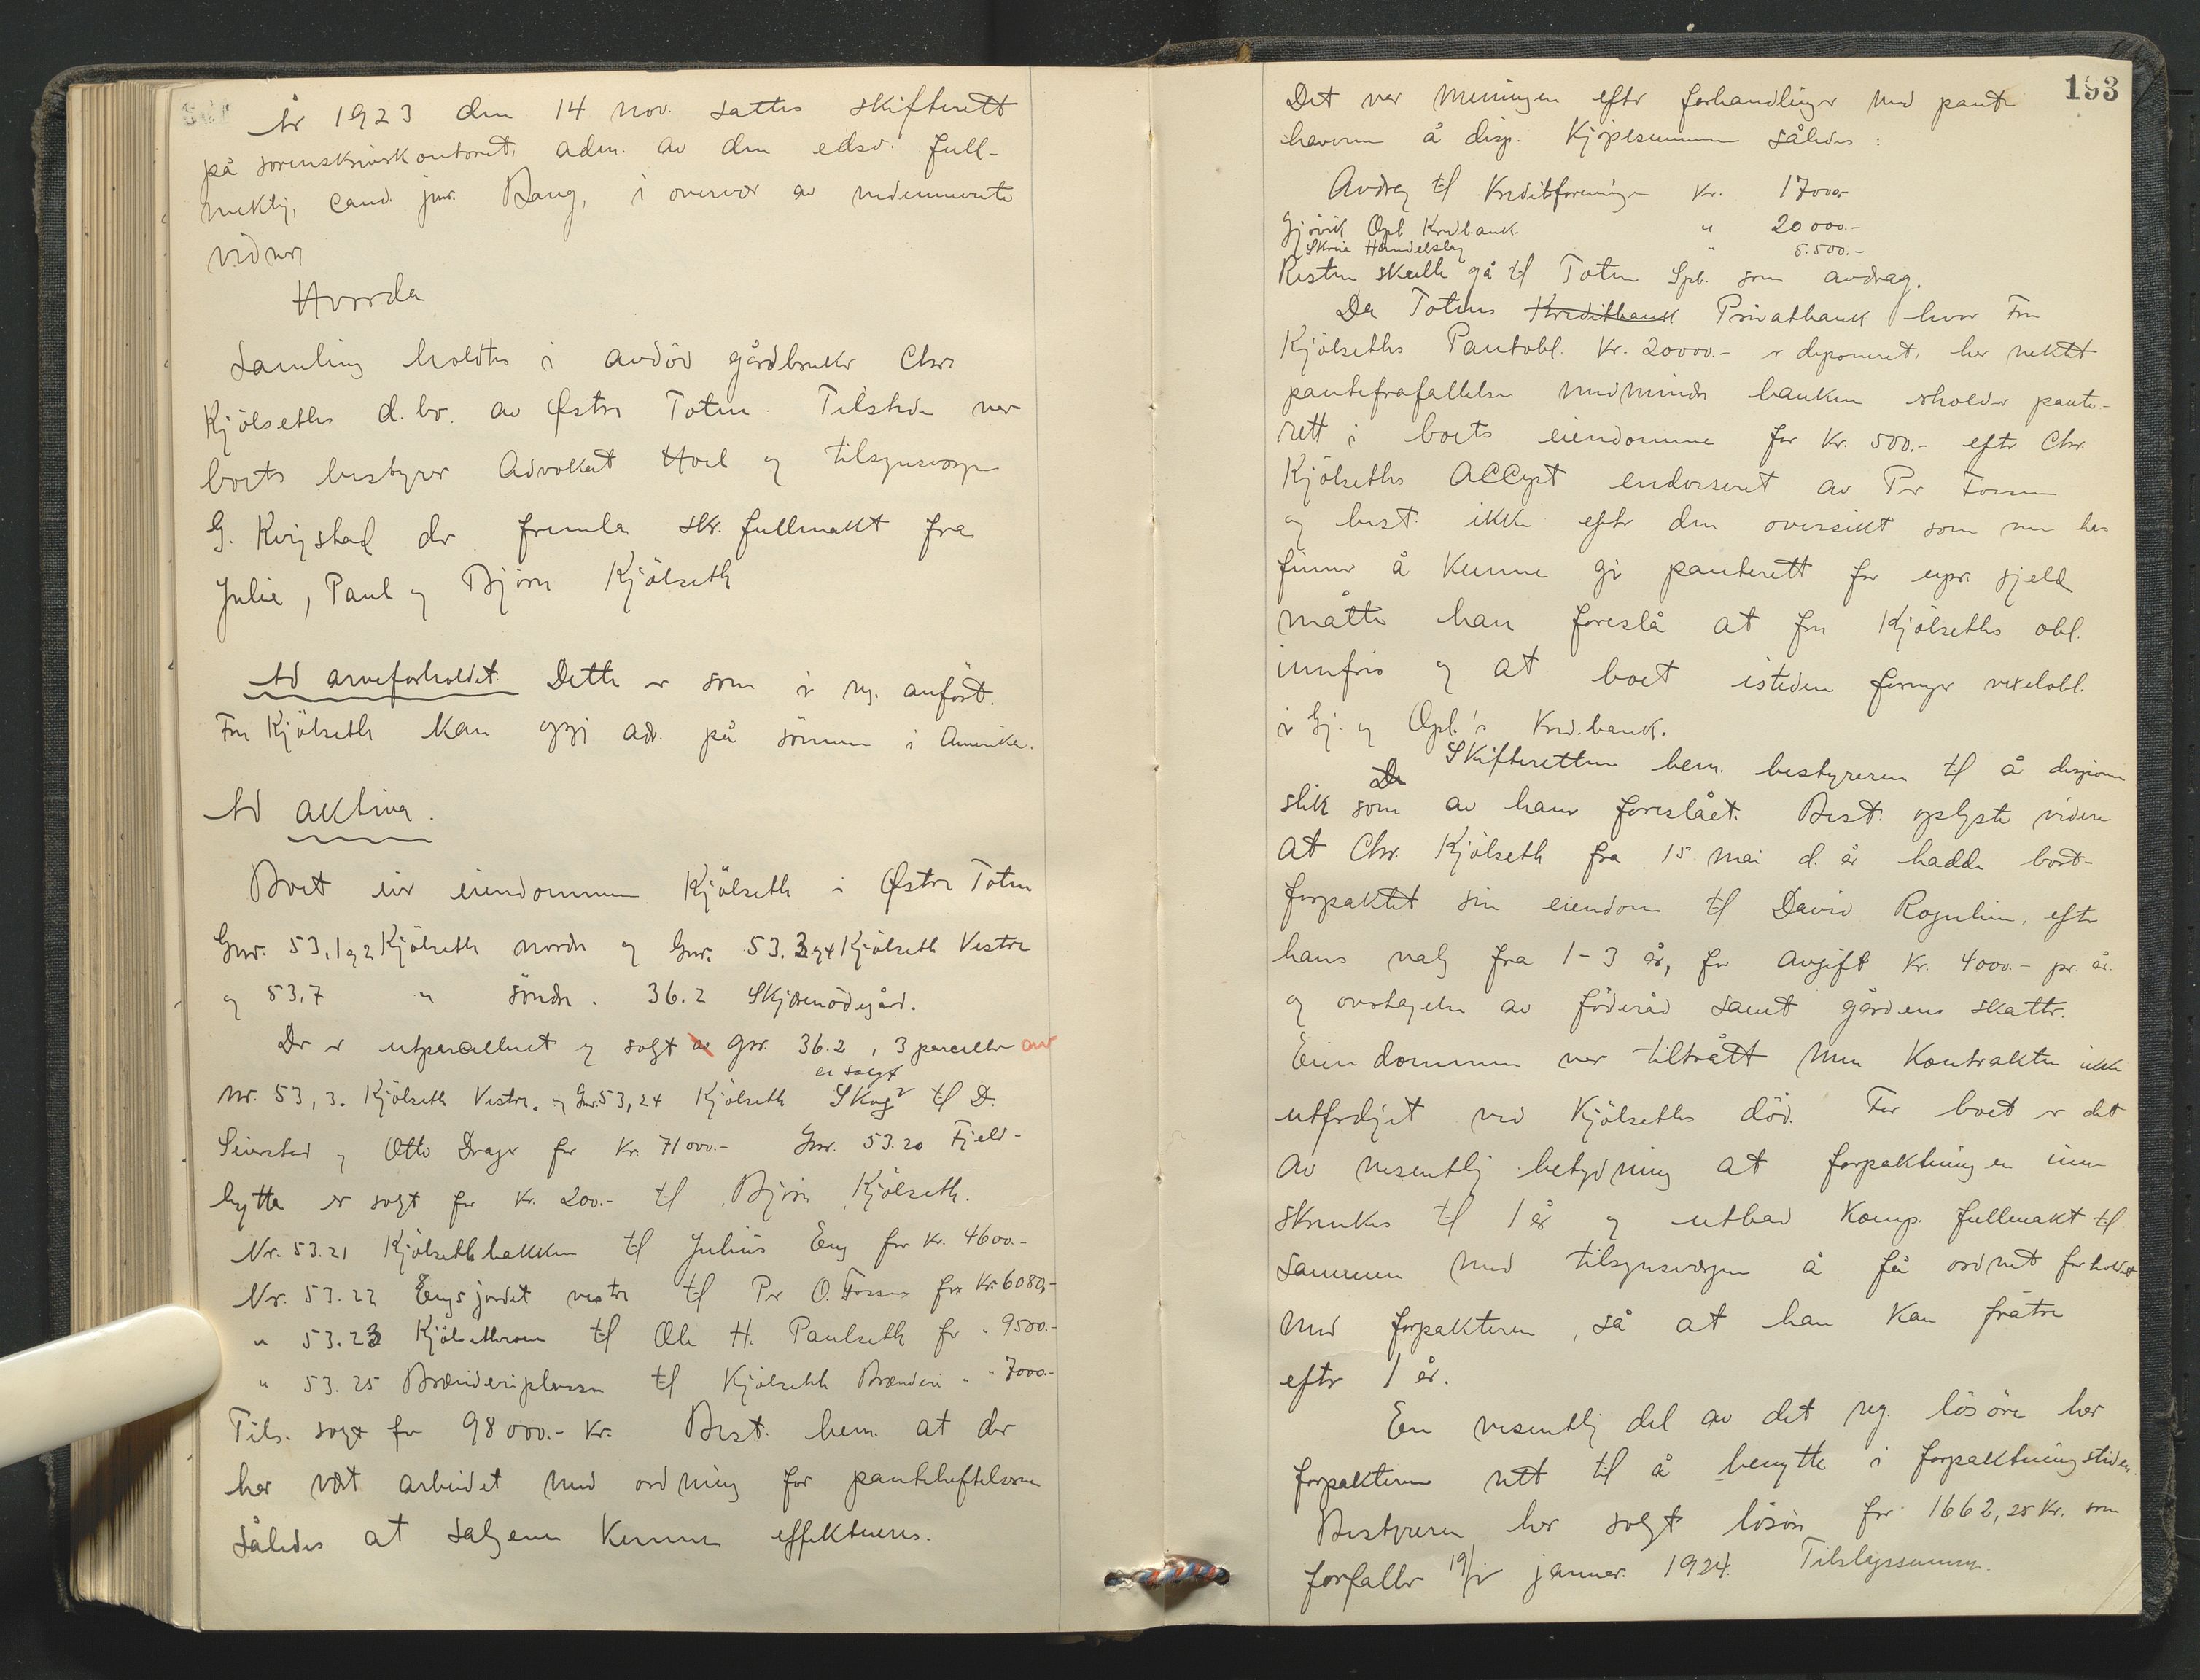 År 1923 den 14 nov. sattes skifterett
på sorenskriverkontoret, adm. av den edsv. full-
mektig, cand. jur. Bang, i overvær av nedennevnte
vidner,
Hvorda
Samling holdtes i avdöd gårdbruker Chr.
Kjölseths d.bo. av Østre Toten. Tilstede var
boets bestyrer Advokat Hoel og tilsynsverge
G. Kvigstad der fremla skr. fullmakt fra
Julie, Paul og Björn Kjölseth
Ad arveforholdet. Dette er som i reg. anfört.
Fru Kjölseth kan opgi adr. på sönnen i Amerika.
Ad aktiva.
Boet eier eiendommen Kjölseth i Østre Toten
Gnr. 53.1 og 2 Kjölseth nordre og Gnr. 53.3 og 4 Kjölseth Vestre
og 53.7 " söndre. 36.2 Skjænödegård.
Der er utparcelleret og solgt av gnr. 36.2, 3 parceller av
er solgt
nr. 53,3. Kjölseth Vestre. og Gnr. 53,24 Kjölseth Skog 2 til D.
Seierstad og Otto Drager for Kr. 71000.- Gnr. 53.20 Fjeld-
hytta er solgt for Kr. 200.- til Björn Kjölseth.
Nr. 53.21 Kjölsethbakken til Julius Eng for Kr. 4600.-
Nr. 53.22 Engsjordet vestre til Per O. Fossen for Kr. 6080,-
" 53.23 til Ole H. Paulseth for " 9500.-
" 53.25 Brænderiplassen til Kjölseth Brænderi " " 7000.-
Tils. solgt for 98000.- Kr. Best. bem. at der
har vært arbeidet med ordning for pantheftelserne
således at salgene kunne effektueres.
193
Det var meningen efter forhandlinger med pante
haverne å disp. Kjöpesummen således:
Avdrag til Kreditforeningen Kr. 17000.-
Gjövik Opl Kredbank. " 20000.-
Skreia Handelslag " 5.500.-
Resten skulle gå til Toten Spb. som avdrag.
Da Totens Kreditbank Privatbank hvor Fru
Kjölseths Pantobl. Kr. 20000.- er deponeret, har nektet
pantefrafallelse medmindre banken erholder pante-
rett i boets eiendomme for Kr. 500.- efter Chr.
Kjölseths accept endosseret av Per Fossen
og best. ikke efter den oversikt som nu has
finner å kunne gi panterett for egen gjeld
måtte han foreslå at fru Kjölseths obl.
innfris og at boet isteden fornyer vexelobl.
i Gj. og Opl.'s Kred.bank.
Skifteretten bem. bestyreren til å disponere
De
slik som av ham foreslået. Best. oplyste videre
at Chr. Kjölseth fra 15 mai d. år hadde bort-
forpaktet sin eiendom til David Rognlien, efter
hans valg fra 1-3 år, for avgift Kr. 4000.- pr. år.
og overtagelse av föderåd samt gårdens skatter.
Eiendommen var tiltrått men Kontrakten ikke
utferdiget ved Kjölseths död. For boet er det
av vesentlig betydning at forpaktningen inn
skrenkes til 1 år og utbad komp. fullmakt til
sammen med tilsynsvergen å få ordnet forholdet
med forpakteren, så at han kan fratre
efter 1 år.
En vesentlig del av det reg. lösöre har
forpakteren rett til å benytte i forpaktningstiden.
Bestyreren har solgt lösöre for 1662,25 Kr. som
forfaller januar 1924. Tilslagssummen.